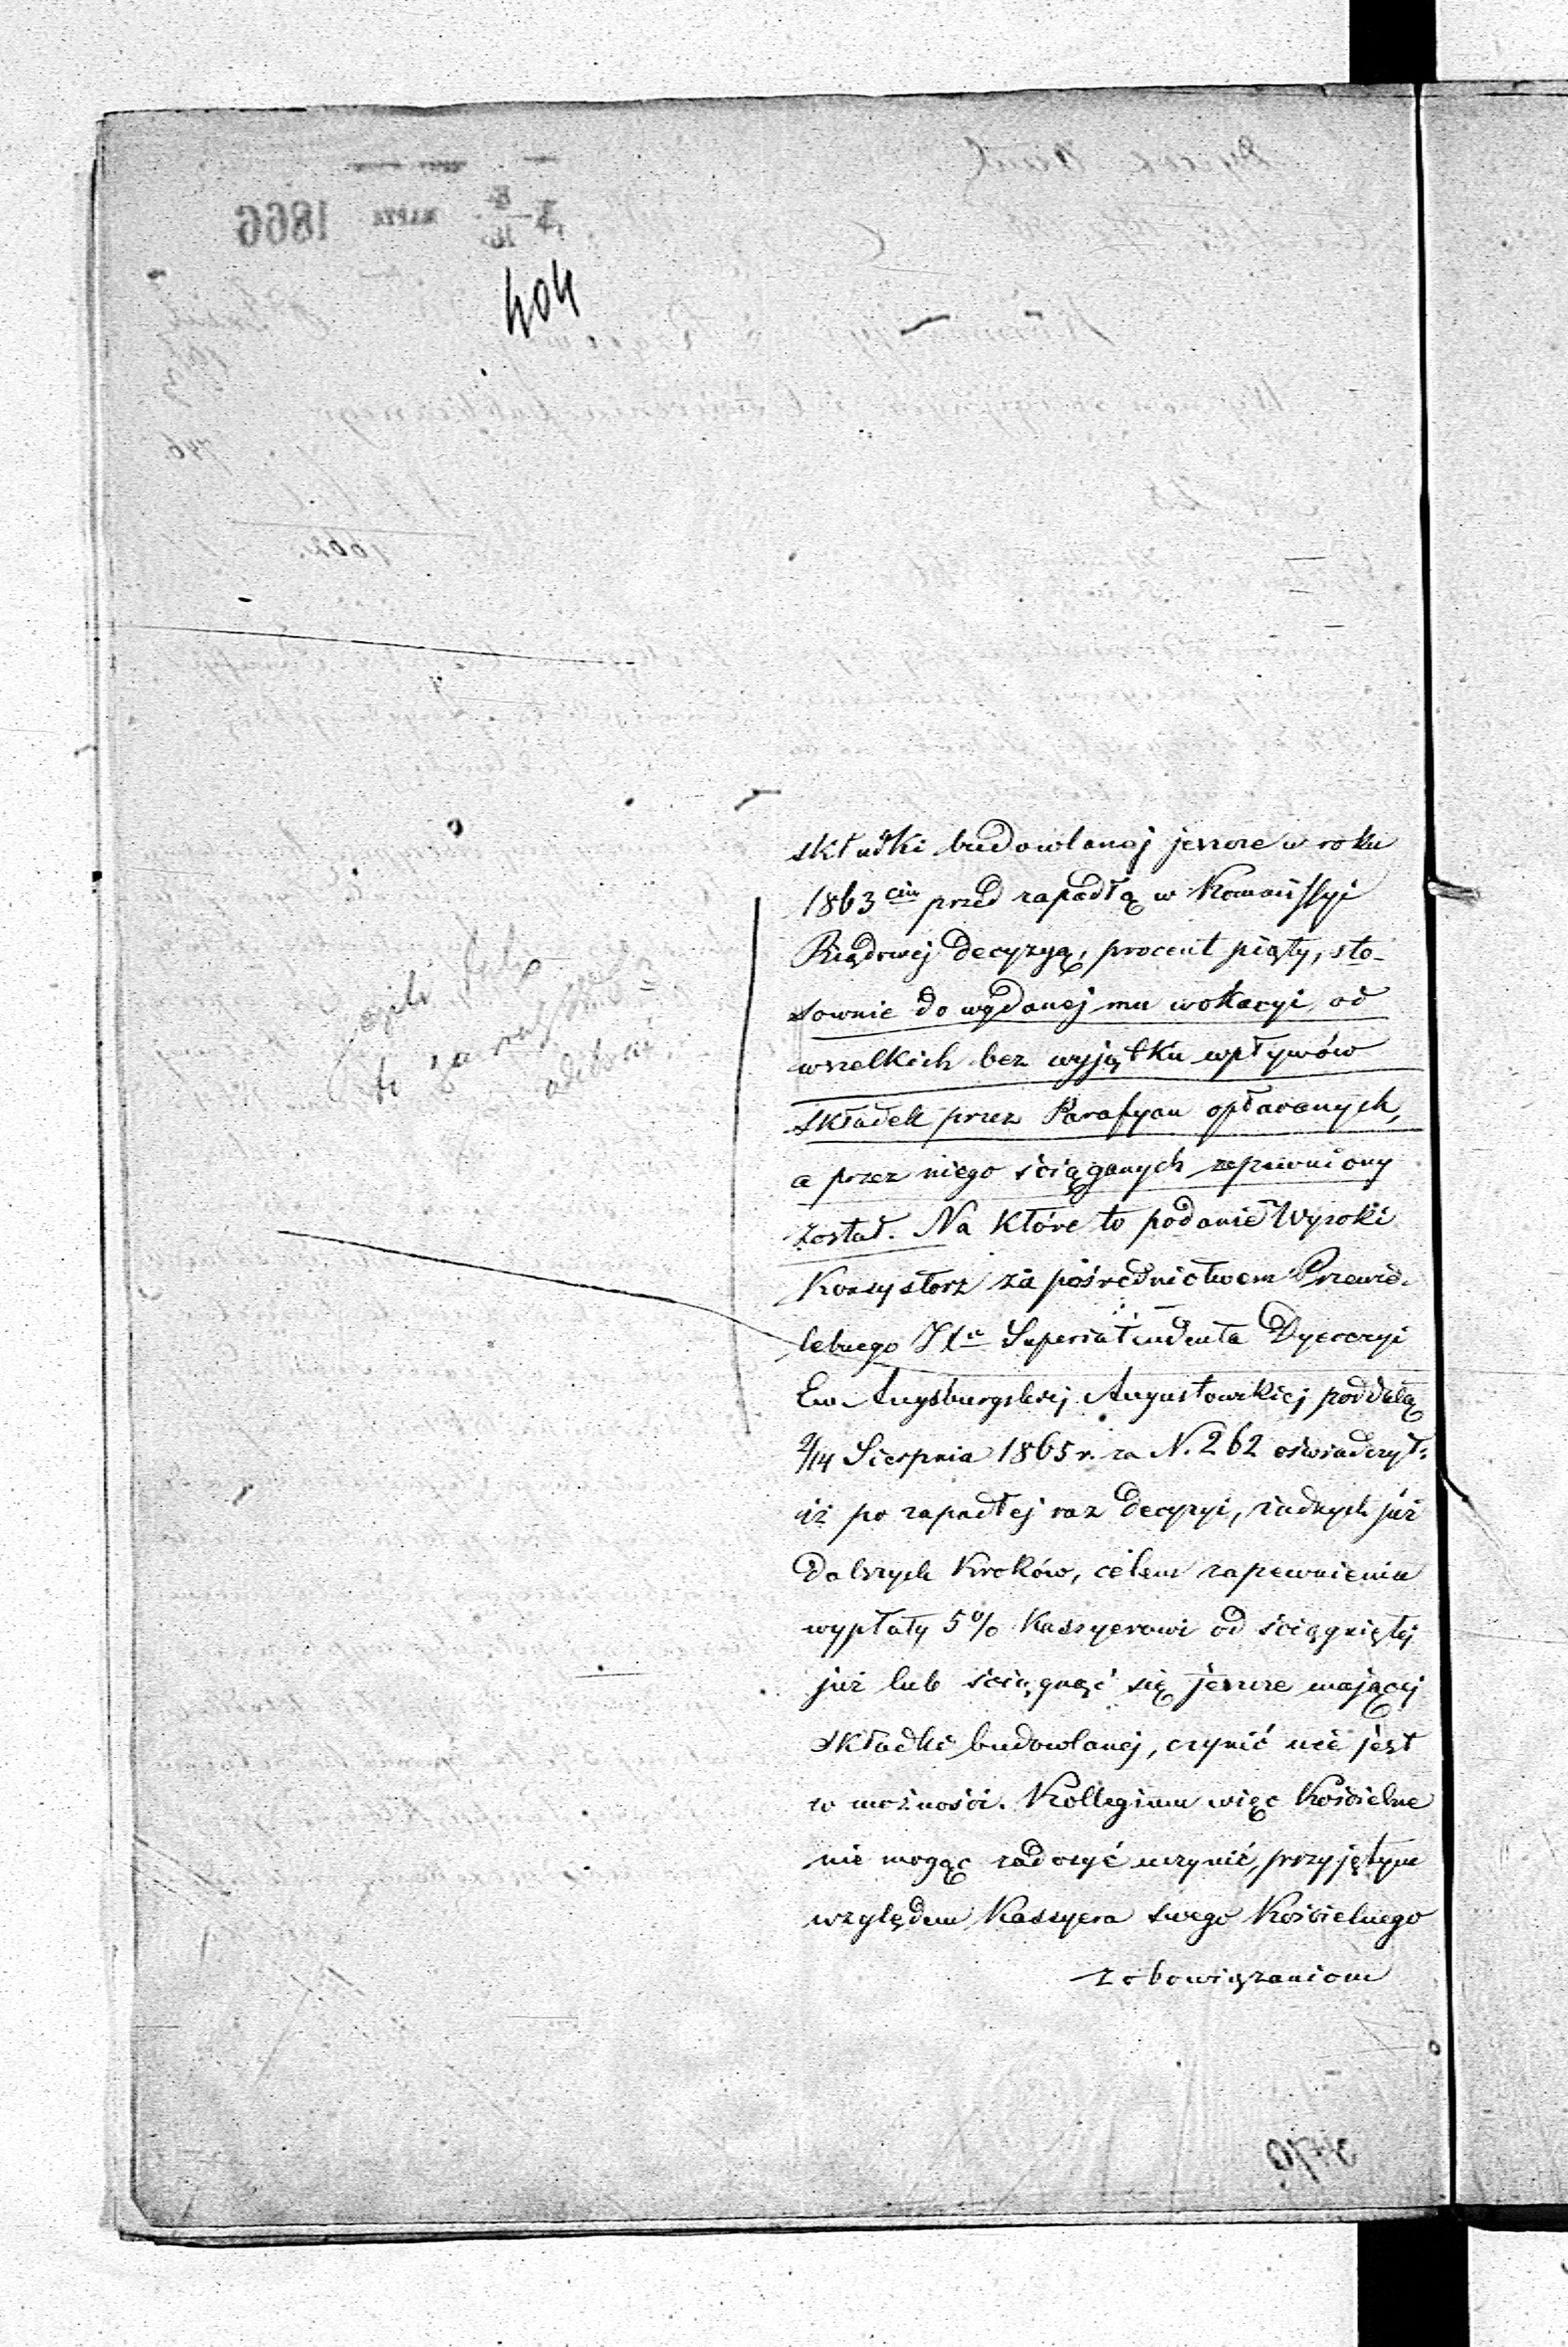 404
składki budowlanej jeszcze w roku
1863 cim przed zapadłą w Kommissyi
Rządowej decyzyą, procent piąty, sto-
sownie do wydanej mu wokacyi, od
wszelkich bez wyjątku wpływów
składek przez Parafyan opłacanych,
a przez niego ściąganych zapewniony
został. Na które to podanie Wysoki
Konsystorz za pośrednictwem Przewie-
lebnego Superintendenta Dyecezyi
Ew. Augsburgskiej Augustowskiej pod datą
2/14 Sierpnia 1865 r. za N. 262 oświadczył:
iż po zapadłej raz decyzyi, żadnych już
dalszych kroków, celem zapewnienia
wypłaty 5% Kassyerowi od ściągniętej
już lub ściągnąć się jeszcze mającej
składki budowlanej, czynić nie jest
w możności. Kollegium więc Kościelne
nie mogąc zadosyć uczynić, przyjętym
względem Kassyera swego Kościelnego
zobowiązaniom